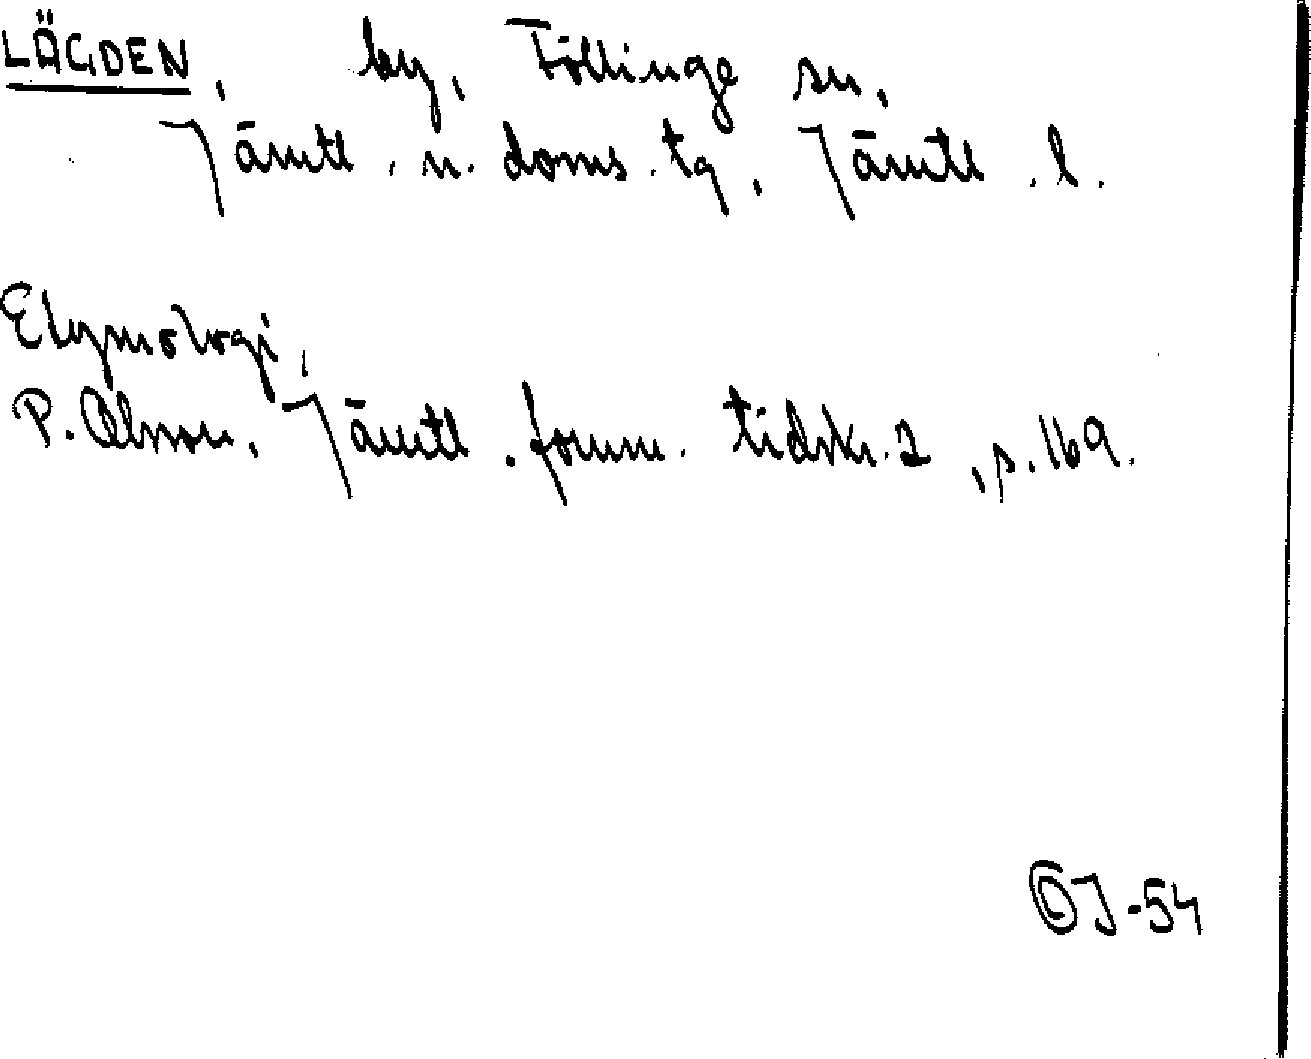 LÄGDEN, by, Föllinge sn,
Jämtl. n. doms. tg, Jämtl. l.
Etymologi,
P. Olsson, Jämtl. fornm. tidskr. 2, s. 169.
©J-54